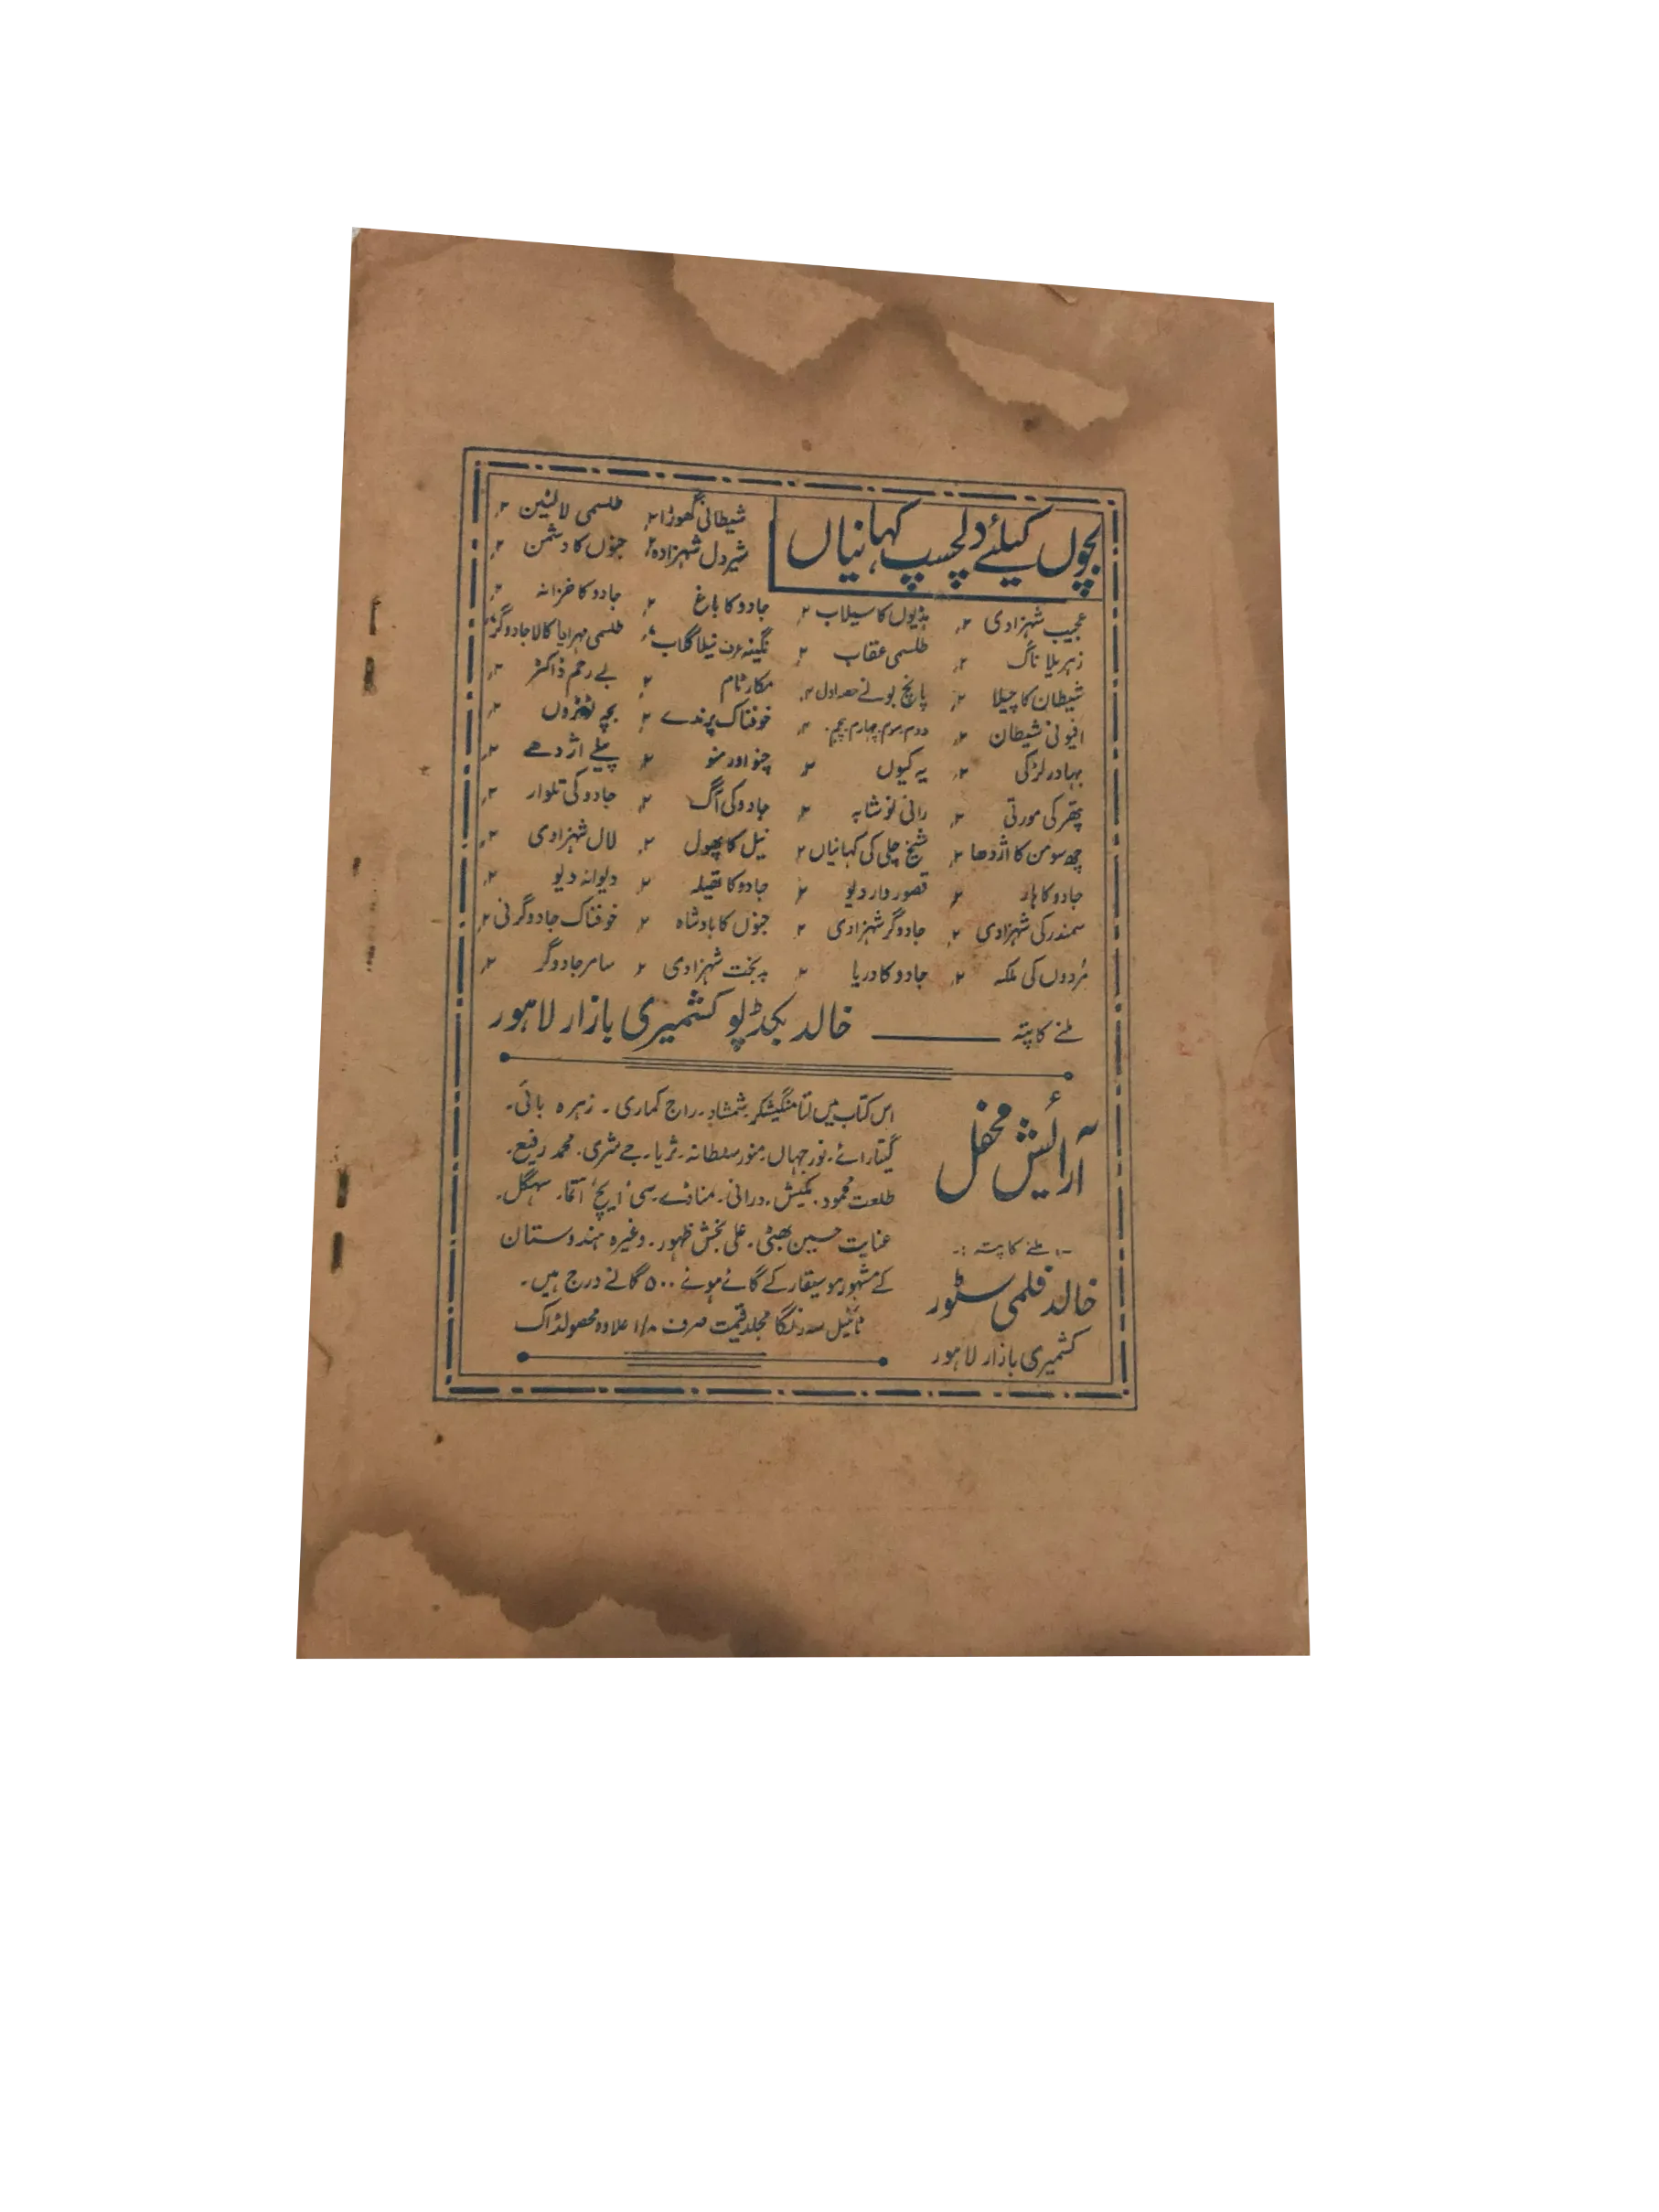 بچوں کیلئے دلچسپ کہانیاں
شیطانی گھوڑا ۲؍ طلسمی لالٹین ۲؍
شیردل شہزادہ ۲؍ جنوں کا دشمن ۲؍
عجیب شہزادی ۲؍ ہڈیوں کا سیلاب ۲؍ جادو کا باغ ۲؍ جادو کا خزانہ ۲؍
زہریلا ناگ ۲؍ طلسمی عقاب ۲؍ نگینہ عرف نیلا گلاب ۲؍ طلسمی مہرا یا کالا جادوگر
شیطان کا چیلا ۲؍ پانچ بونے حصہ اول ۲؍ مکار ٹام ۲؍ بے رحم ڈاکٹر ۲؍
افیونی شیطان ۲؍ دوم۔سوم۔چہارم۔پنجم۔ ۲؍ خوفناک پرندے ۲؍ بچہ ۲؍
بہادر لڑکی ۲؍ یہ کیوں ۲؍ چنو اور منو ۲؍ پیلے اژدھے ۲؍
پتھر کی مورتی ۲؍ رانی نوشابہ ۲؍ جادو کی آگ ۲؍ جادو کی تلوار ۲؍
چھ سو من کا اژدھا ۲؍ شیخ چلی کی کہانیاں ۲ نیل کا پھول ۲؍ لال شہزادی ۲؍
جادو کا ہار ۲ قصور وار دیو ۲ جادو کا تھیلہ ۲ دیوانہ دیو ۲؍
سمندر کی شہزادی ۲؍ جادوگر شہزادی ۲ جنوں کا بادشاہ ۲ خوفناک جادوگرنی ۲؍
مُردوں کی ملکہ ۲؍ جادو کا دریا ۲ بدبخت شہزادی ۲ سامر جادوگر ۲؍
ملنے کا پتہ ــــــ خالد بکڈپو کشمیری بازار لاہور
آرائش محفل
-: ملنے کا پتہ :-
خالد فلمی سٹور
کشمیری بازار لاہور
اس کتاب میں لتا منگیشکر۔شمشاد۔راج کماری۔ زہرہ بائی۔
گیتا رائے۔نورجہاں۔منور سلطانہ۔ثریا۔جے شری۔محمد رفیع۔
طلعت محمود۔مکیش۔درانی۔مناڈے۔سی' ایچ' آتما۔ سہگل۔
عنایت حسین بھٹی۔علی بخش ظہور۔وغیرہ ہندوستان
کے مشہور موسیقار کے گائے ہوئے ۵۰۰ گانے درج ہیں۔
ٹائیٹل سہ رنگا مجلد قیمت صرف ۱/۸ علاوہ محصولڈاک